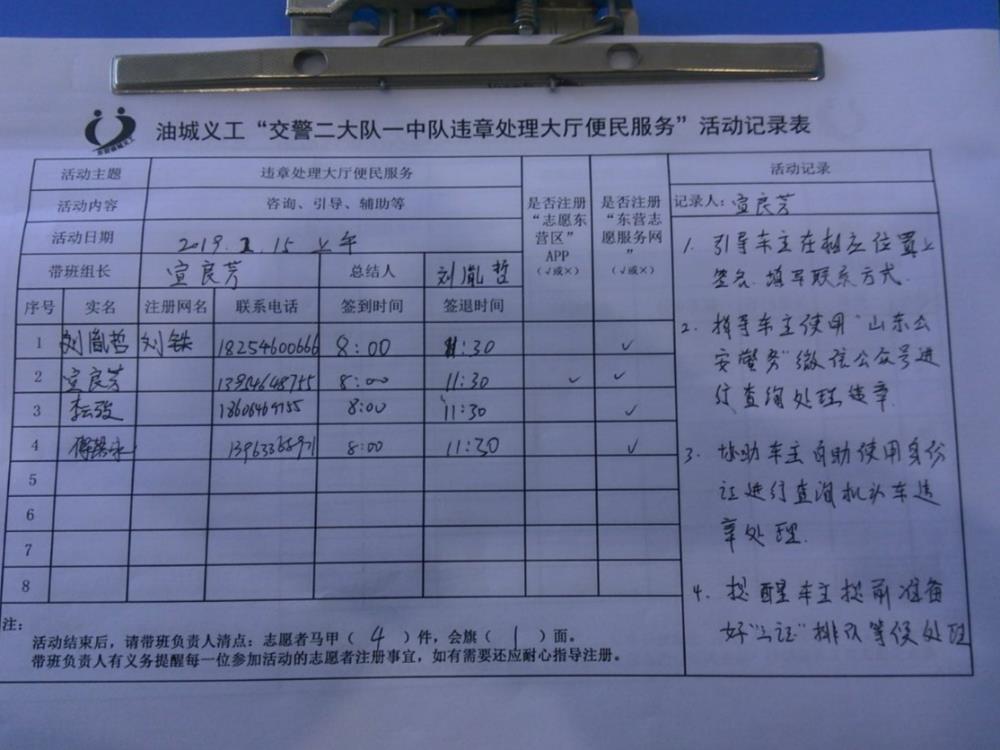 油城义工“交警二大队一中队违章处理大厅便民服务”活动记录表
活动主题 违章处理大厅便民服务
活动内容 咨询、引导、辅助等
活动日期 2019.1.15 上午
带班组长 宣良芳 总结人 刘胤哲
是否注册“志愿东营区”APP（√或×）
是否注册“东营志愿服务网”（√或×）
序号 实名 注册网名 联系电话 签到时间 签退时间
1 刘胤哲 刘铁 18254600666 8:00 11:30 ✓
2 宣良芳 8:00 11:30 ✓ ✓
3 8:00 11:30 ✓
4 8:00 11:30 ✓
5
6
7
8
活动记录
记录人：宣良芳
1. 引导车主在相应位置上
签名.填写联系方式.
2. 指导车主使用“山东公
安警务”微信公众号进
行查询处理违章
3. 协助车主自助使用身份
证进行查询机头车违
章处理.
4. 提醒车主提前准备
好“三证”排队等候处理
注：
活动结束后，请带班负责人清点：志愿者马甲（ 4 ）件，会旗（ 1 ）面。
带班负责人有义务提醒每一位参加活动的志愿者注册事宜，如有需要还应耐心指导注册。